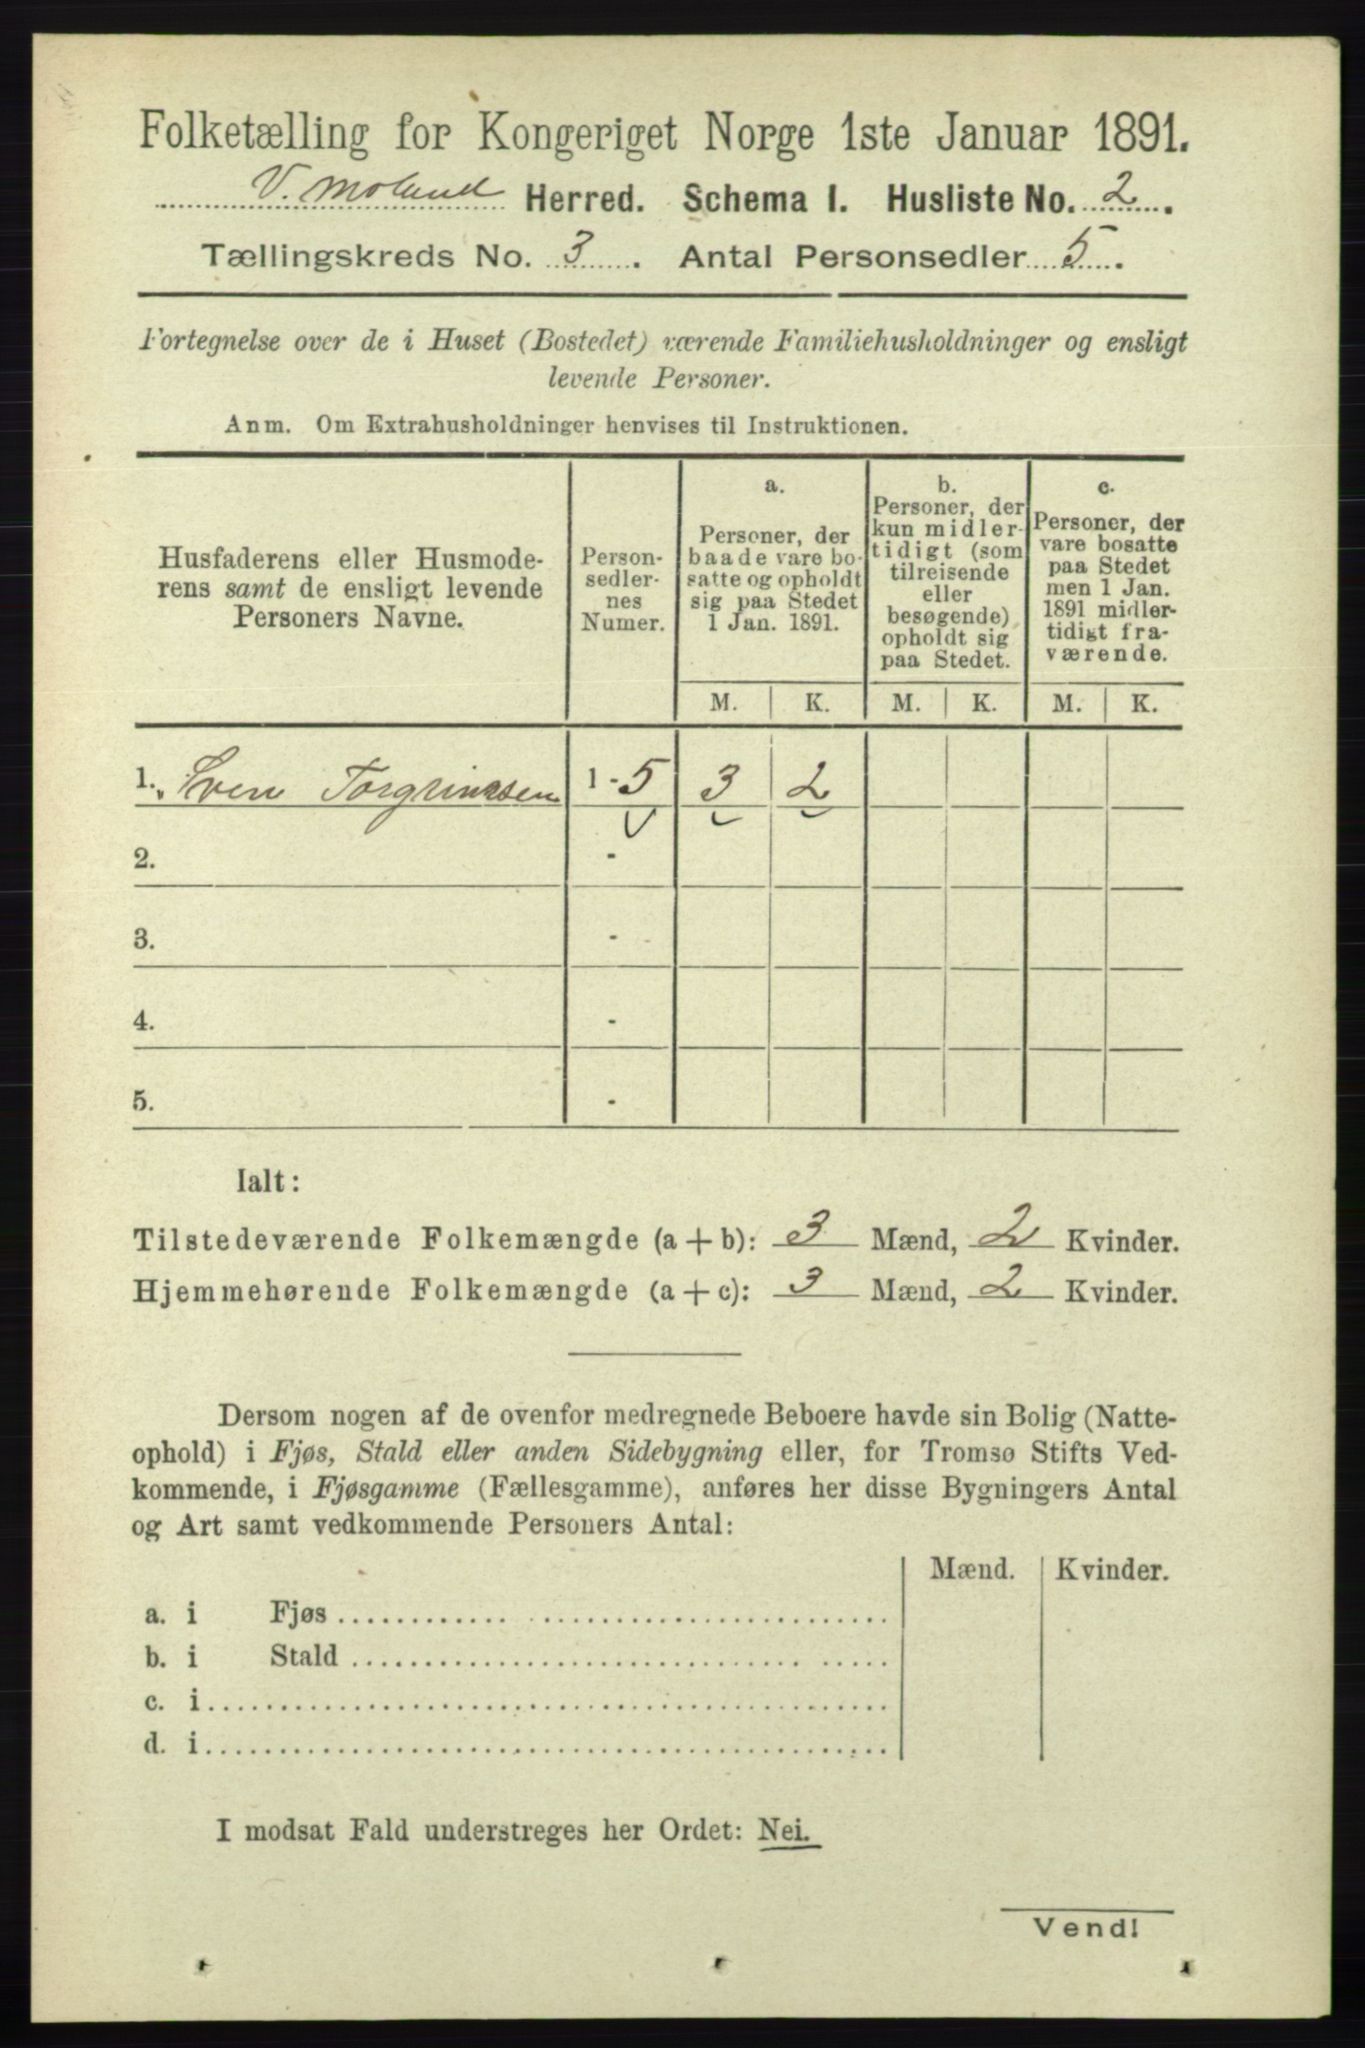 Folketælling for Kongeriget Norge 1ste Januar 1891.
V. Moland Herred. Schema I. Husliste No. 2.
Tællingskreds No. 3. Antal Personsedler 5.
Fortegnelse over de i Huset (Bostedet) værende Familiehusholdninger og ensligt
levende Personer.
Anm. Om Extrahusholdninger henvises til Instruktionen.
Husfaderens eller Husmode-
rens samt de ensligt levende
Personers Navne.
Person-
sedler-
nes
Numer.
a.
Personer, der
baade vare bo-
satte og opholdt
sig paa Stedet
1 Jan. 1891.
b.
Personer, der
kun midler-
tidigt (som
tilreisende
eller
besøgende)
opholdt sig
paa Stedet.
c.
Personer, der
vare bosatte
paa Stedet
men 1 Jan.
1891 midler-
tidigt fra-
værende.
M. K. M. K. M. K.
1. Sven Torgrimsen 1 - 5 3 2
2. -
3. -
4. -
5. -
Ialt:
Tilstedeværende Folkemængde (a + b): 3 Mænd, 2 Kvinder.
Hjemmehørende Folkemængde (a + c): 3 Mænd, 2 Kvinder.
Dersom nogen af de ovenfor medregnede Beboere havde sin Bolig (Natte-
ophold) i Fjøs, Stald eller anden Sidebygning eller, for Tromsø Stifts Ved-
kommende, i Fjøsgamme (Fællesgamme), anføres her disse Bygningers Antal
og Art samt vedkommende Personers Antal:
Mænd. Kvinder.
a. i Fjøs
b. i Stald
c. i
d. i
I modsat Fald understreges her Ordet: Nei.
Vend!